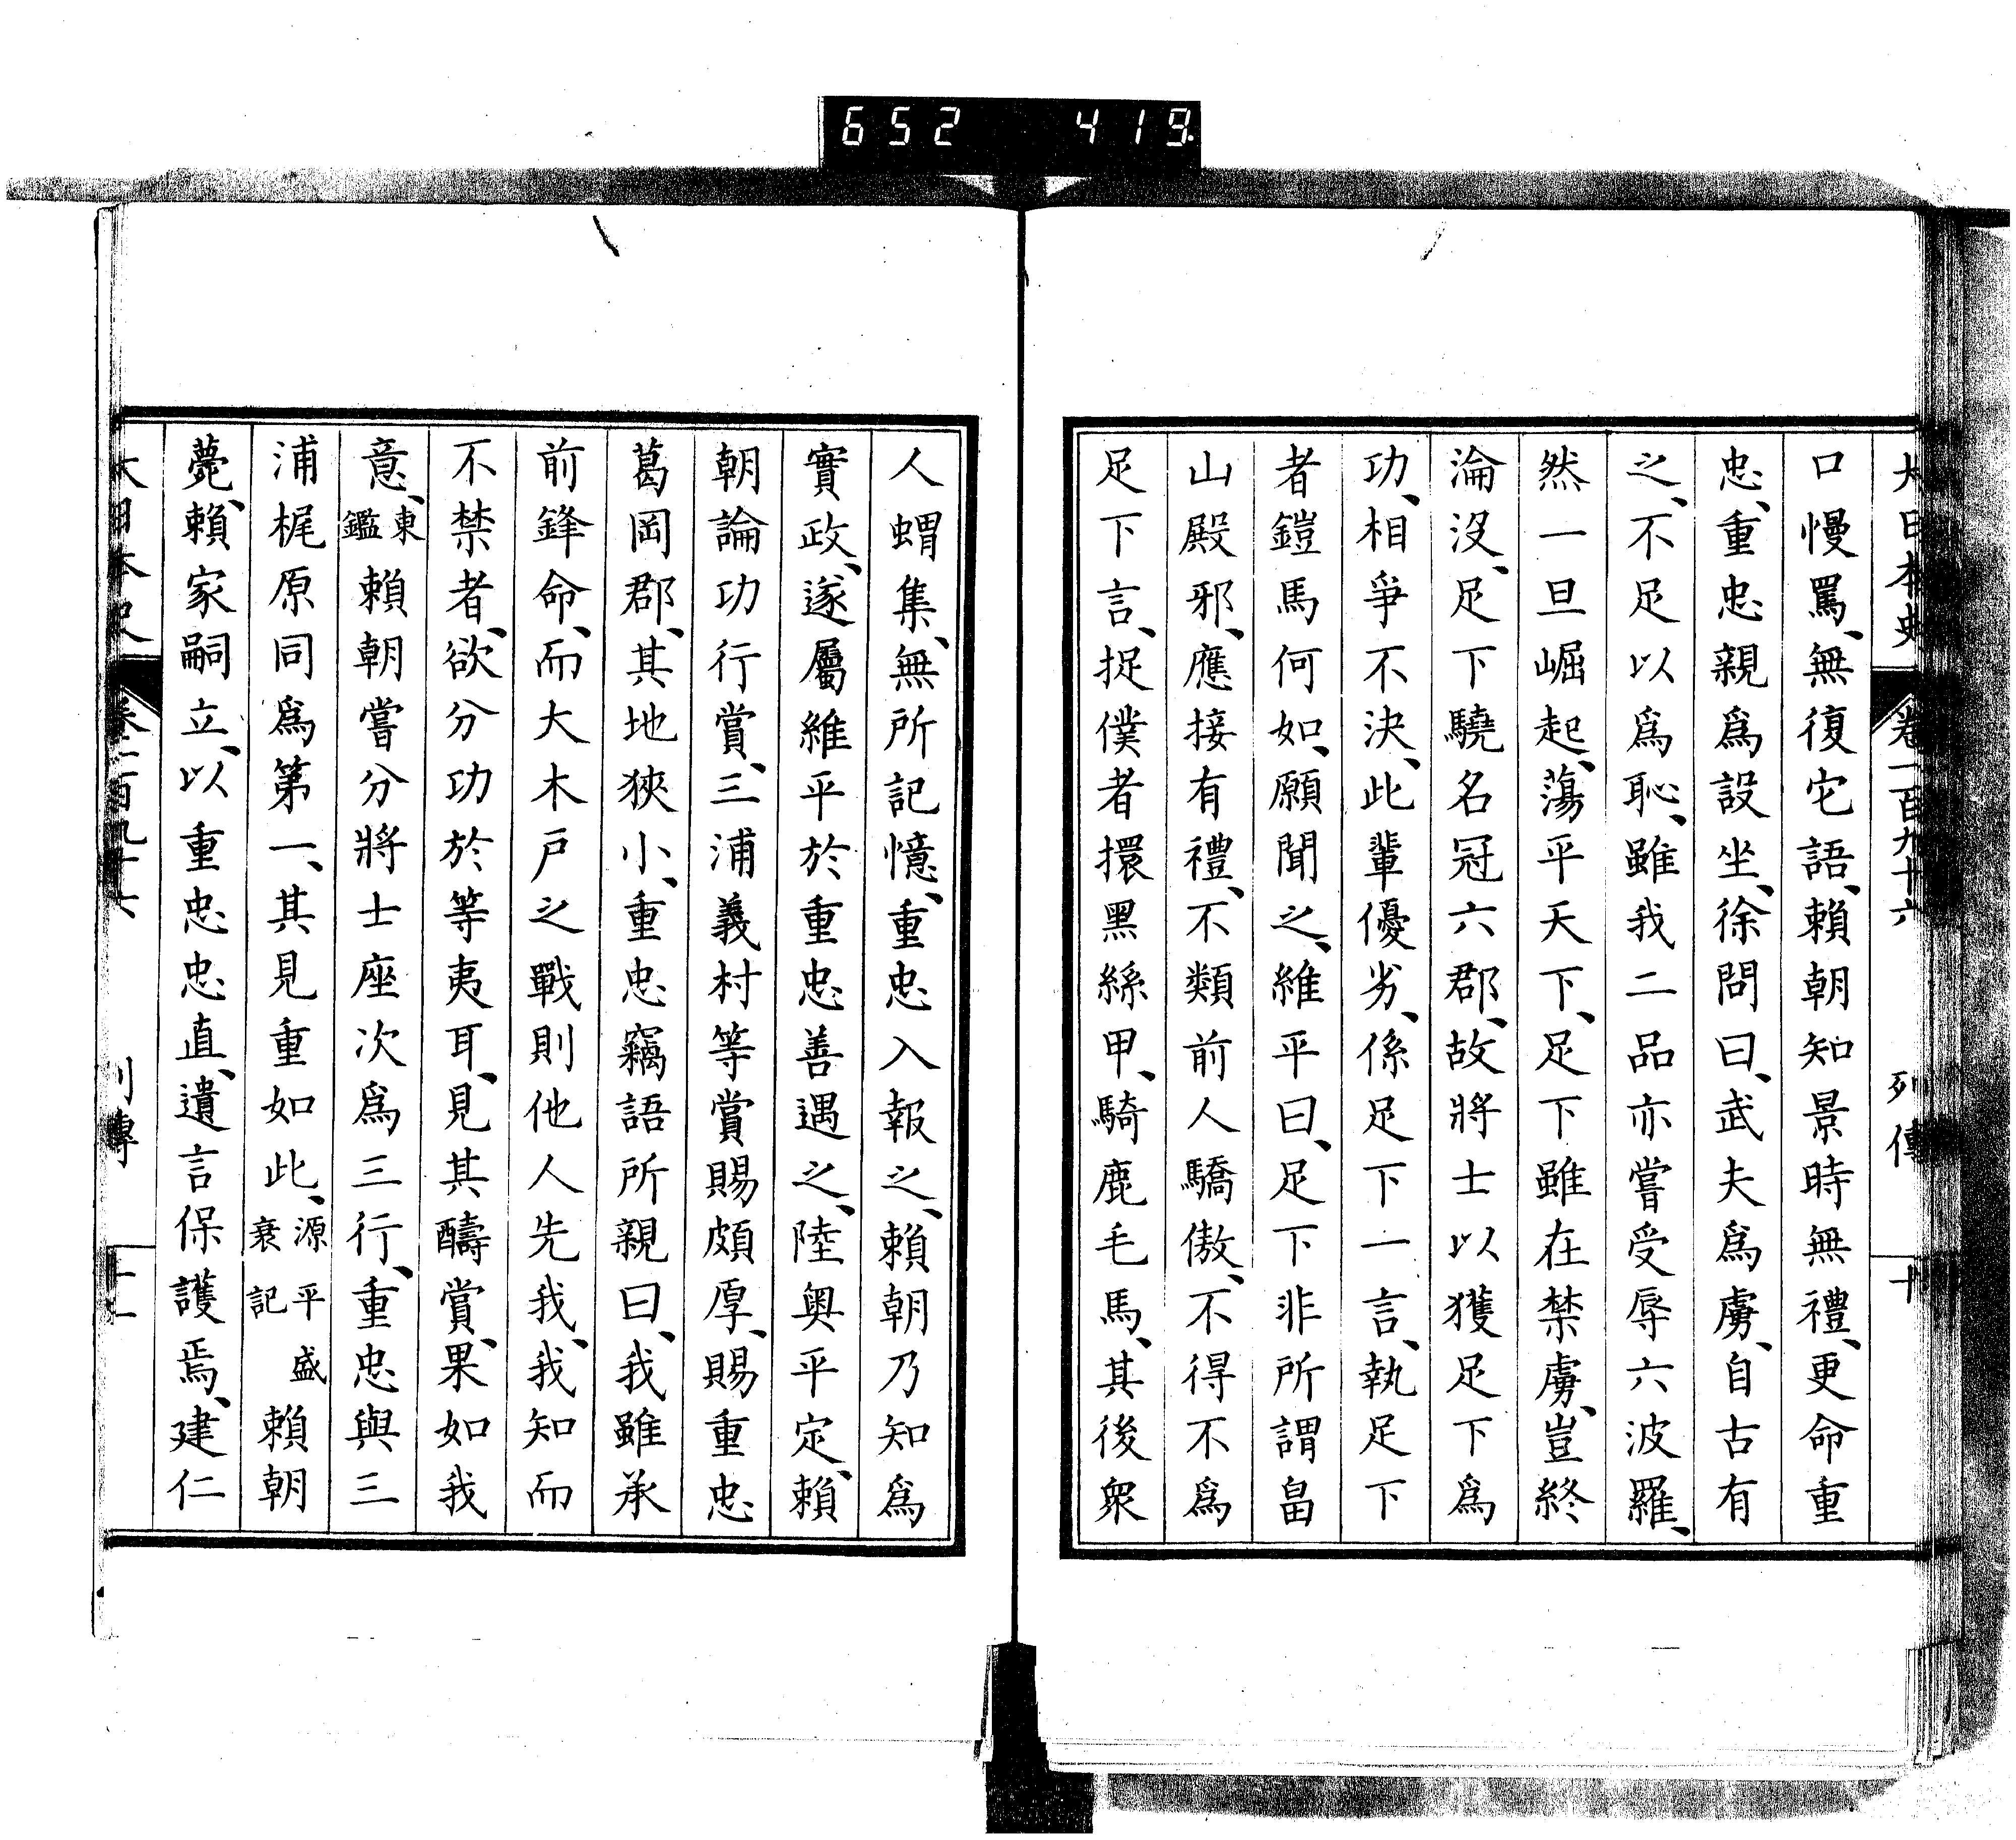 652 419
大日本史 卷一百九十六 列傳 十
口慢罵、無復它語、賴朝知景時無禮、更命重
忠、重忠親爲設坐、徐問曰、武夫爲虜、自古有
之、不足以爲恥、雖我二品亦嘗受辱六波羅、
然一旦崛起、蕩平天下、足下雖在禁虜、豈終
淪沒、足下驍名冠六郡、故將士以獲足下爲
功、相爭不決、此輩優劣、係足下一言、執足下
者鎧馬何如、願聞之、維平曰、足下非所謂畠
山殿邪、應接有禮、不類前人驕傲、不得不爲
足下言、捉僕者擐黑絲甲、騎鹿毛馬、其後衆
人蝟集、無所記憶、重忠入報之、賴朝乃知爲
實政、遂屬維平於重忠善遇之、陸奥平定、賴
朝論功行賞、三浦義村等賞賜頗厚、賜重忠
葛岡郡、其地狹小、重忠竊語所親曰、我雖承
前鋒命、而大木戸之戰則他人先我、我知而
不禁者、欲分功於等夷耳、見其醻賞、果如我
意、東鑑賴朝嘗分將士座次爲三行、重忠與三
浦梶原同爲第一、其見重如此、源平盛衰記賴朝
薨、賴家嗣立、以重忠忠直、遺言保護焉、建仁
大日本史 卷一百九十六 列傳 十一